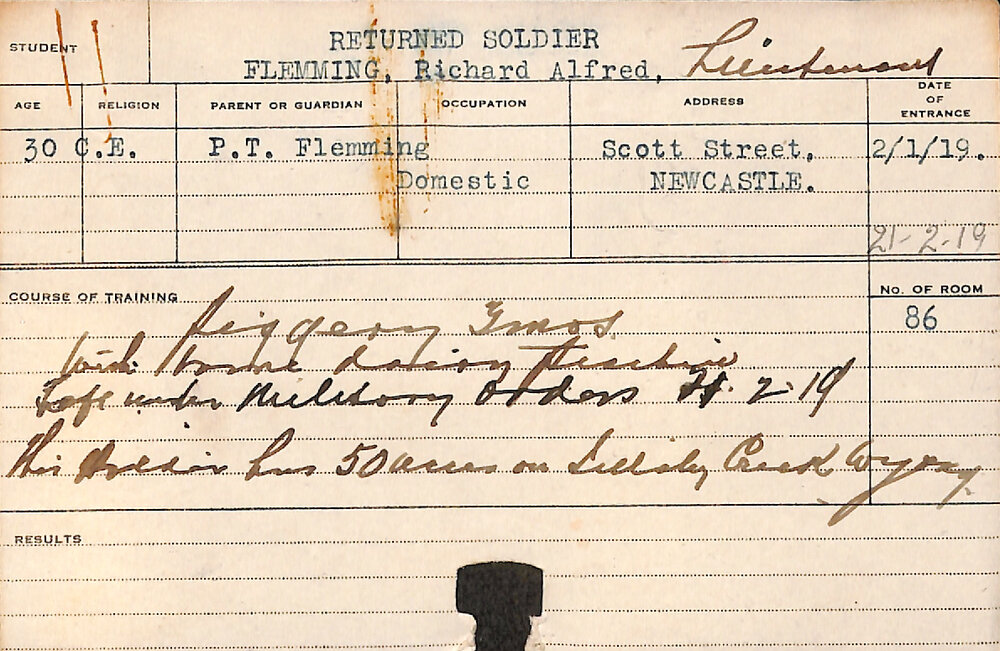 STUDENT
RETURNED SOLDIER
FLEMMING, Richard Alfred, Lieutenant
AGE RELIGION PARENT OR GUARDIAN OCCUPATION ADDRESS DATE OF ENTRANCE
30 C.E. P.T. Flemming Scott Street, 2/1/19.
Domestic NEWCASTLE.
21-2-19
COURSE OF TRAINING No. OF ROOM
86
Piggery 3mos
with some dairy practice
Left under Military Orders 21.2.19
This soldier has 50 acres on Creek Wyong
RESULTS